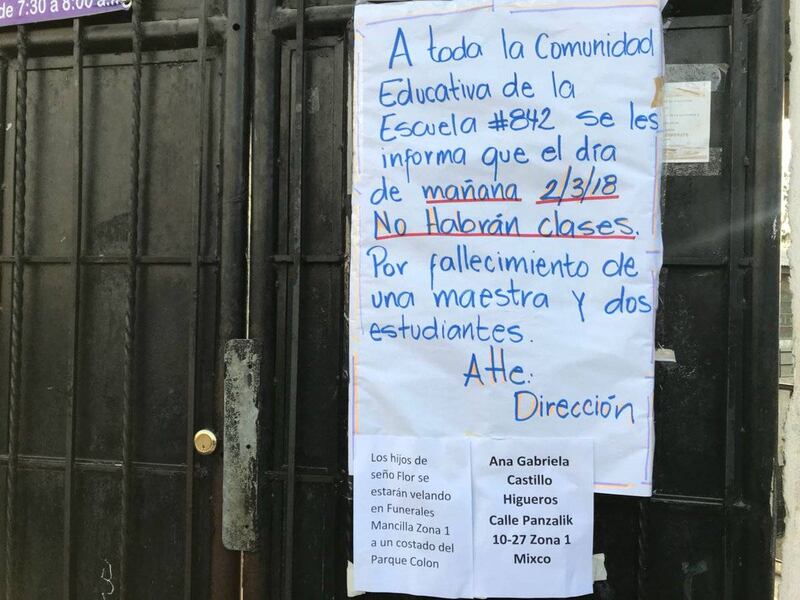 de 7:30 a 8:00 a.m
A toda la Comunidad
Educativa de la
Escuela #842 se les
informa que el día
de mañana 2/3/18
No Habrán clases.
Por fallecimiento de
una maestra y dos
estudiantes.
Atte:
Dirección
Los hijos de
seño Flor se
estarán velando
en Funerales
Mancilla Zona 1
a un costado del
Parque Colon
Ana Gabriela
Castillo
Higueros
Calle Panzalik
10-27 Zona 1
Mixco